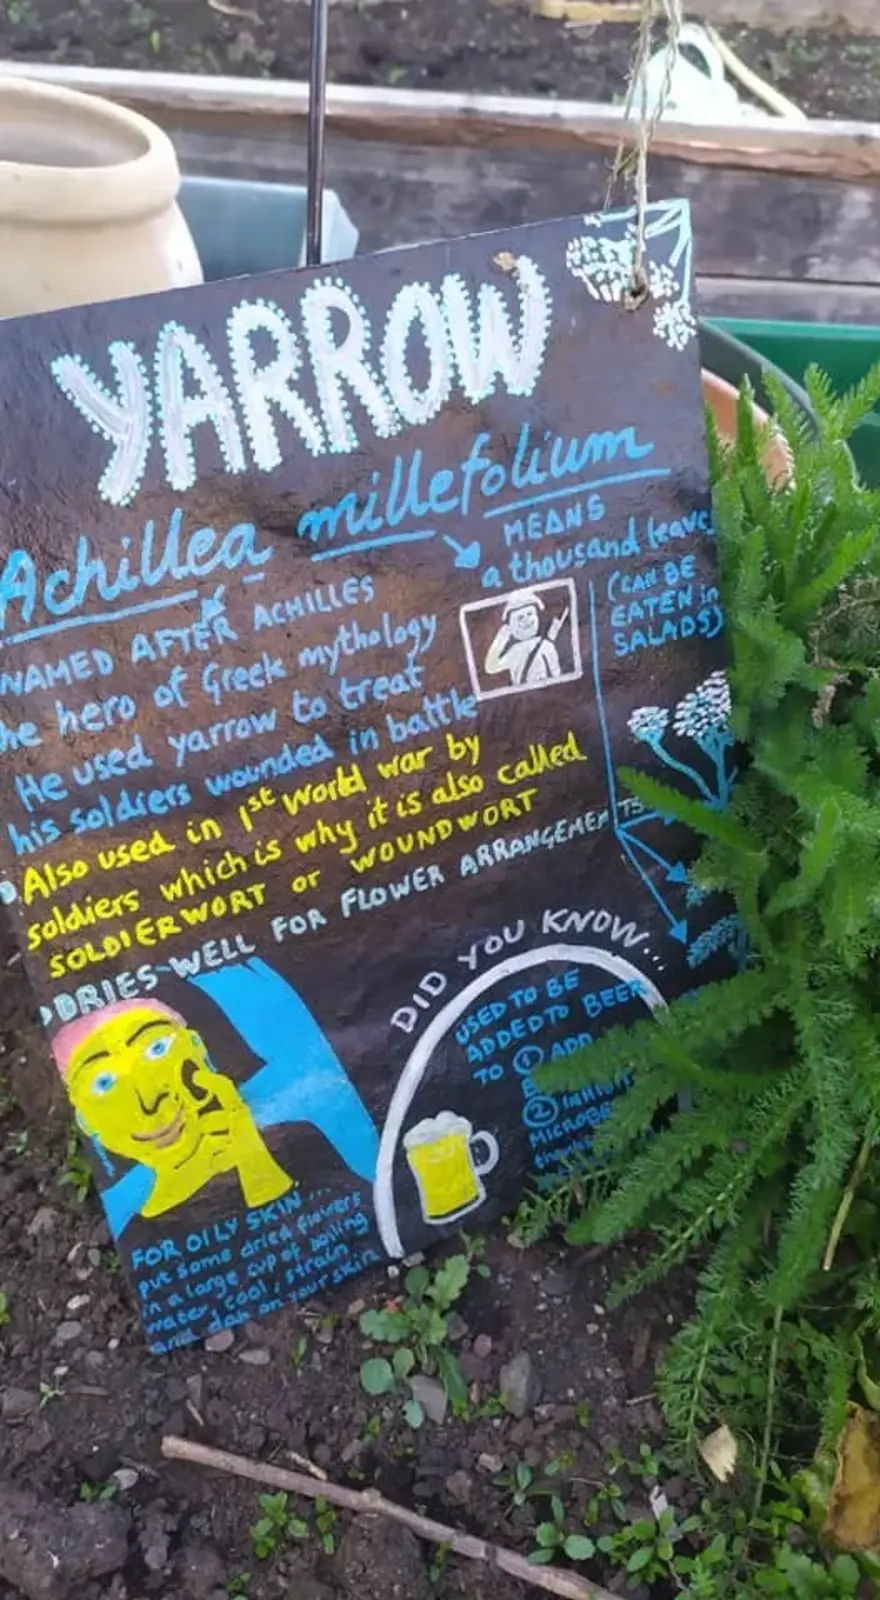 YARROW
Achillea millefolium
MEANS
a thousand leave
(CAN BE
EATEN in
SALADS)
NAMED AFTER ACHILLES
he hero of Greek mythology
He used yarrow to treat
his soldiers wounded in battle
Also used in 1st World War by
soldiers which is why it is also called
SOLDIERWORT or WOUNDWORT
DRIES WELL FOR FLOWER ARRANGEMENTS
DID YOU KNOW...
USED TO BE
ADDED TO BEER
TO ① ADD
②
MICROBE
FOR OILY SKIN...
put some dried flowers
in a large cup of boiling
water, cool, strain
and dab on your skin